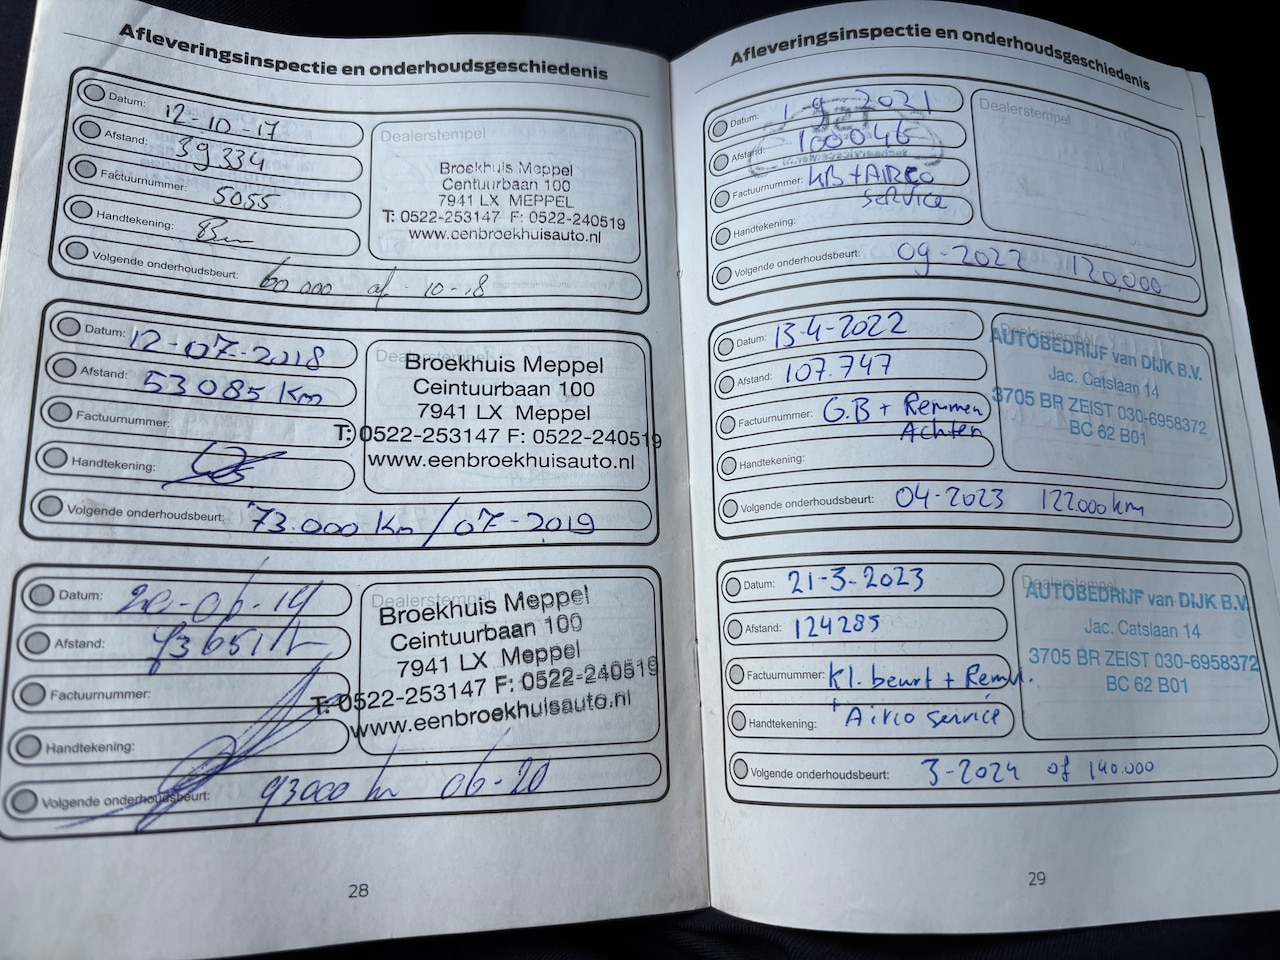 Afleveringsinspectie en onderhoudsgeschiedenis
Datum: 12-10-17
Afstand: 39 334
Factuurnummer: 5055
Handtekening:
Volgende onderhoudsbeurt: 60 000 of 10-18
Dealerstempel
Broekhuis Meppel
Centuurbaan 100
7941 LX MEPPEL
T: 0522-253147 F: 0522-240519
www.eenbroekhuisauto.nl
Datum: 12-07-2018
Afstand: 53085 Km
Factuurnummer:
Handtekening:
Volgende onderhoudsbeurt: 73.000 Km / 07-2019
Dealerstempel
Broekhuis Meppel
Ceintuurbaan 100
7941 LX Meppel
T: 0522-253147 F: 0522-240519
www.eenbroekhuisauto.nl
Datum: 20-06-19
Afstand:
Factuurnummer:
Handtekening:
Volgende onderhoudsbeurt: 93000 km 06-20
Dealerstempel
Broekhuis Meppel
Ceintuurbaan 100
7941 LX Meppel
T: 0522-253147 F: 0522-240519
www.eenbroekhuisauto.nl
28
Afleveringsinspectie en onderhoudsgeschiedenis
Datum: 1-9-2021
Afstand: 100046
Factuurnummer: KB + AIRCO
service
Handtekening:
Volgende onderhoudsbeurt: 09-2022 120,000
Dealerstempel
Datum: 13-4-2022
Afstand: 107.747
Factuurnummer: G.B + Remmen
Achter
Handtekening:
Volgende onderhoudsbeurt: 04-2023 122.000 km
Dealerstempel
AUTOBEDRIJF van DIJK B.V.
Jac. Catslaan 14
3705 BR ZEIST 030-6958372
BC 62 B01
Datum: 21-3-2023
Afstand: 124285
Factuurnummer: Kl. beurt + Remvl.
Handtekening: + Airco service
Volgende onderhoudsbeurt: 3-2024 of 140.000
Dealerstempel
AUTOBEDRIJF van DIJK B.V.
Jac. Catslaan 14
3705 BR ZEIST 030-6958372
BC 62 B01
29